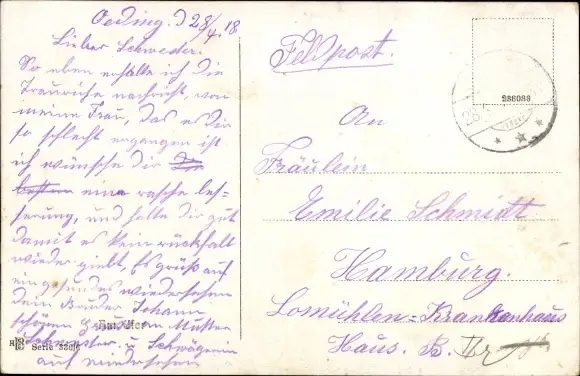 Oeding. d 28/4. 18
Lieber Schwester!
So eben erhalte ich die
Traurige nachricht, von
meine Frau, das es dir
so schlecht ergangen ist
ich wünsche dir die
besten eine rasche bes-
serung, und halte dir gut
damit es kein rückhalt
wieder giebt, Es grüß auf
ein gesundes wiedersehen
dein Bruder Johann
schönen Gruß an Mutter
Schwester u Schwägerin
auf wiedersehen
Serie 320/6
Feldpost.
288086
An
Fräulein
Emilie Schmidt
Hamburg.
Lomühlen-Krankenhaus
Haus. B.